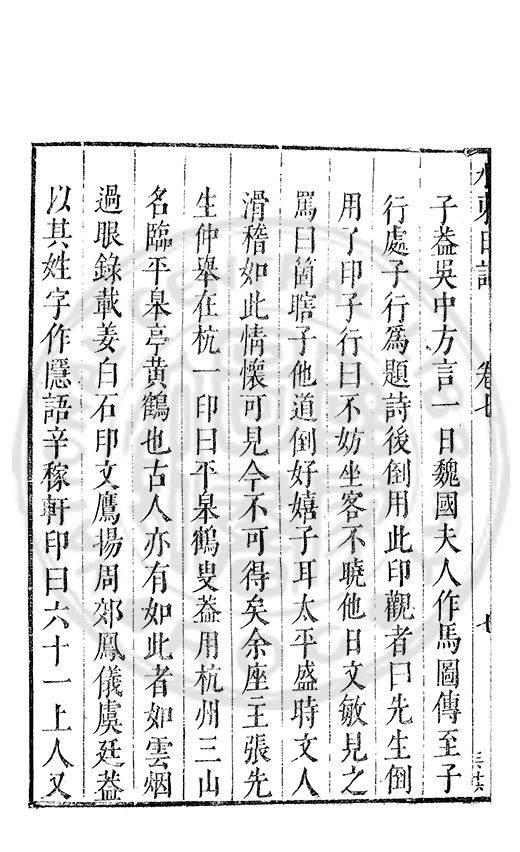 子葢吳中方言一日魏國夫人作馬圖傳至子
行處子行爲題詩後倒用此印觀者曰先生倒
用了印子行曰不妨坐客不曉他日文敏見之
罵曰箇瞎子他道倒好嬉子耳太平盛時文人
滑稽如此情懷可見今不可得矣余座主張先
生仲舉在杭一印曰平皋鶴叟葢用杭州三山
名臨平皋亭黃鶴也古人亦有如此者如雲烟
過眼錄載姜白石印文鷹揚周郊鳳儀虞廷葢
以其姓字作隱語辛稼軒印曰六十一上人又